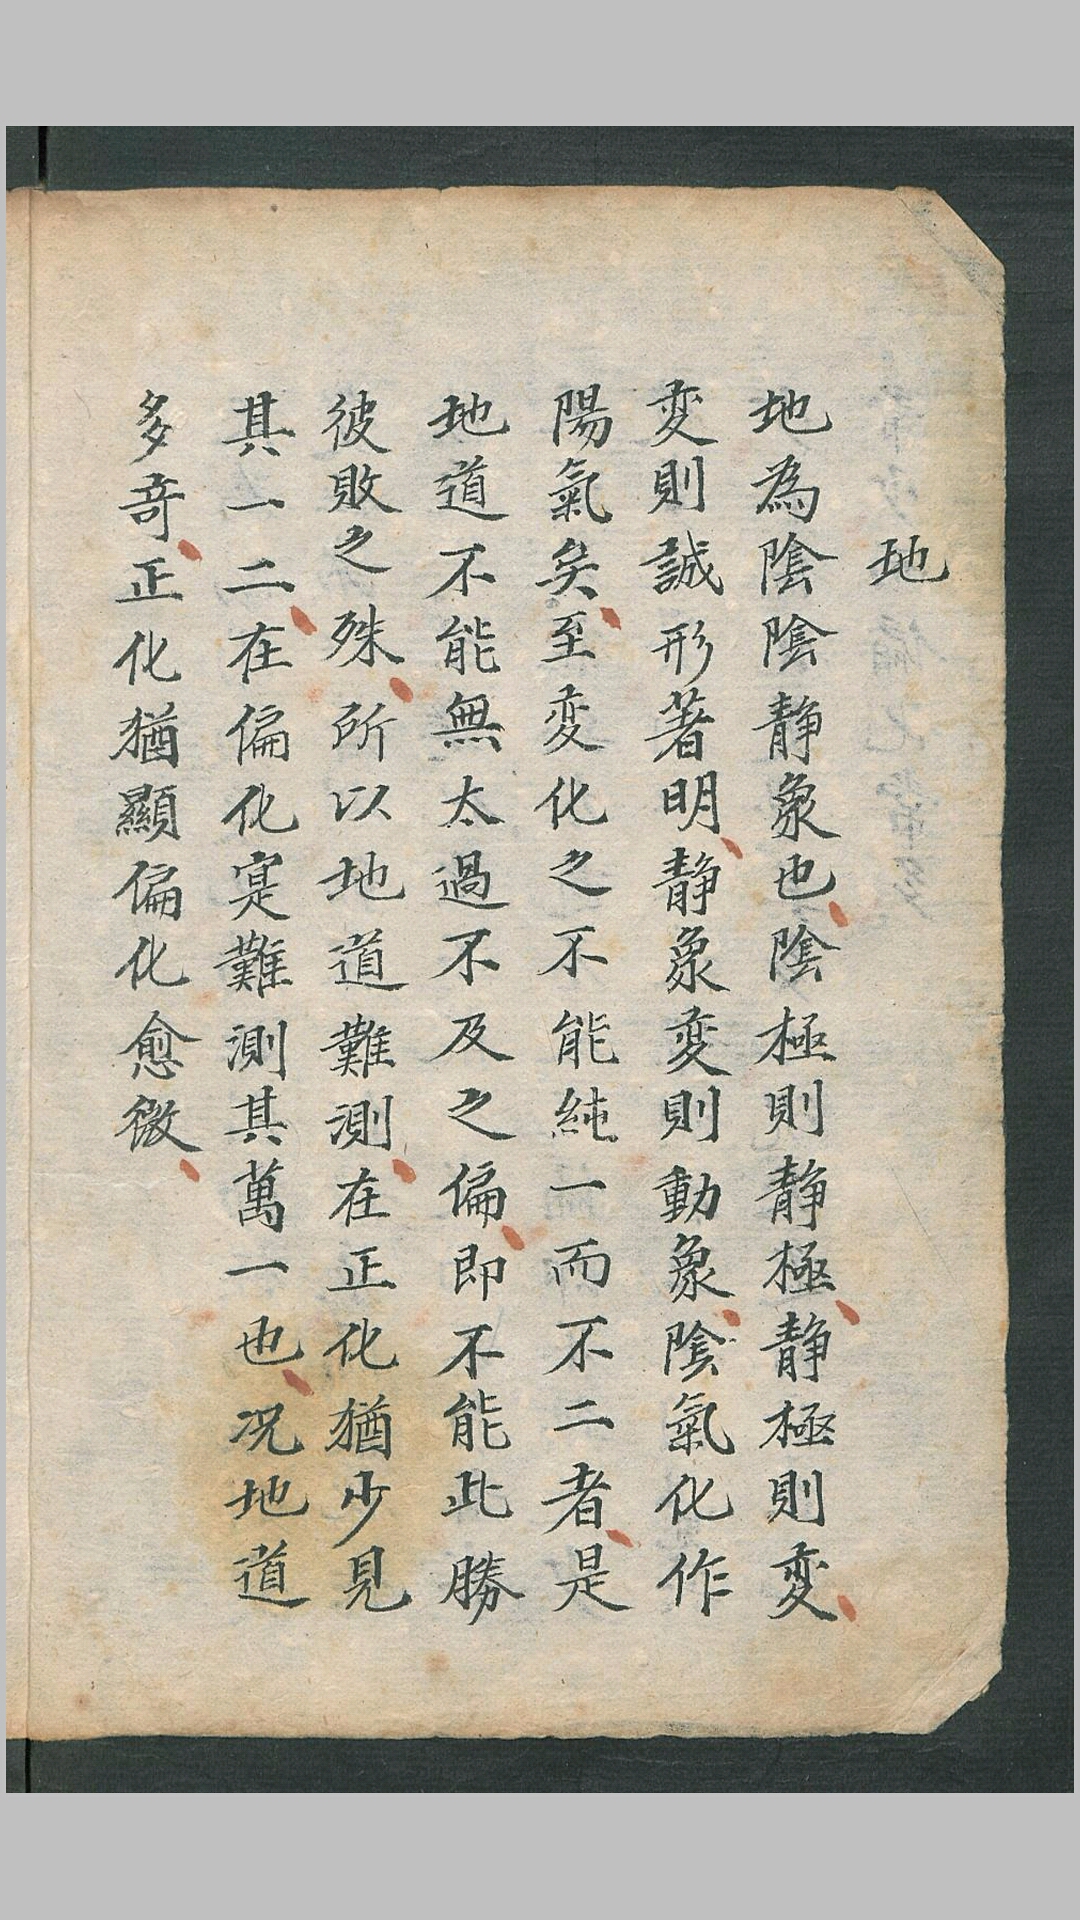 地
地為陰陰静象也陰極則静極静極則変
変則誠形著明静象変則動象陰氣化作
陽氣矣至変化之不能純一而不二者是
地道不能無太過不及之偏即不能此勝
彼敗之殊所以地道難測在正化猶少見
其一二在偏化寔難測其萬一也况地道
多奇正化猶顯偏化愈微